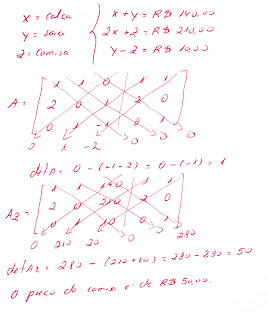 X = calça
Y = saia
Z = camisa
X + Y = R$ 140,00
2X + Z = R$ 210,00
Y - Z = R$ 10,00
A =
1 1 0 1 1
2 0 1 2 0
0 1 0 1
0 1 -2 0 0
det A = 0 - (-1-2) = 0 - (-1) = 1
A2 =
1 1 140 1 1
2 0 210 2 0
0 10 0 1
0 210 20 0 0 280
det A2 = 280 - (210+20) = 280 - 230 = 50
O preço da camisa é de R$ 50,00.